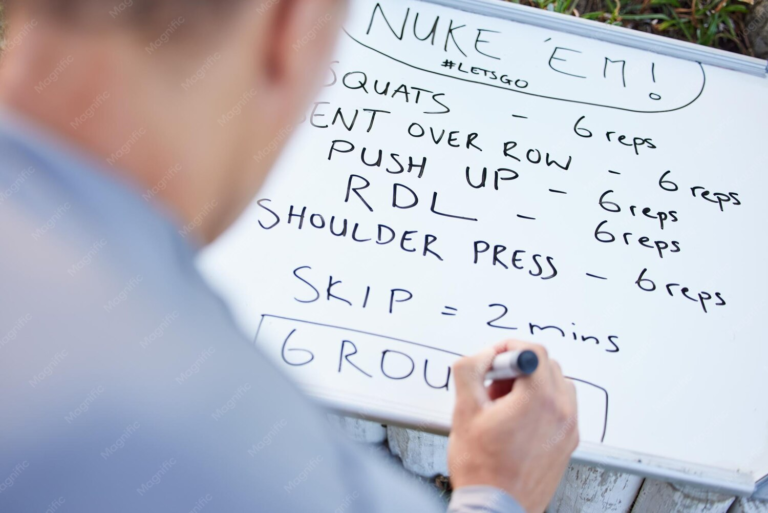 NUKE 'EM!
#LETSGO
SQUATS - 6 reps
BENT OVER ROW - 6 reps
PUSH UP - 6 reps
RDL - 6 reps
SHOULDER PRESS - 6 reps
SKIP = 2 mins
6 ROU